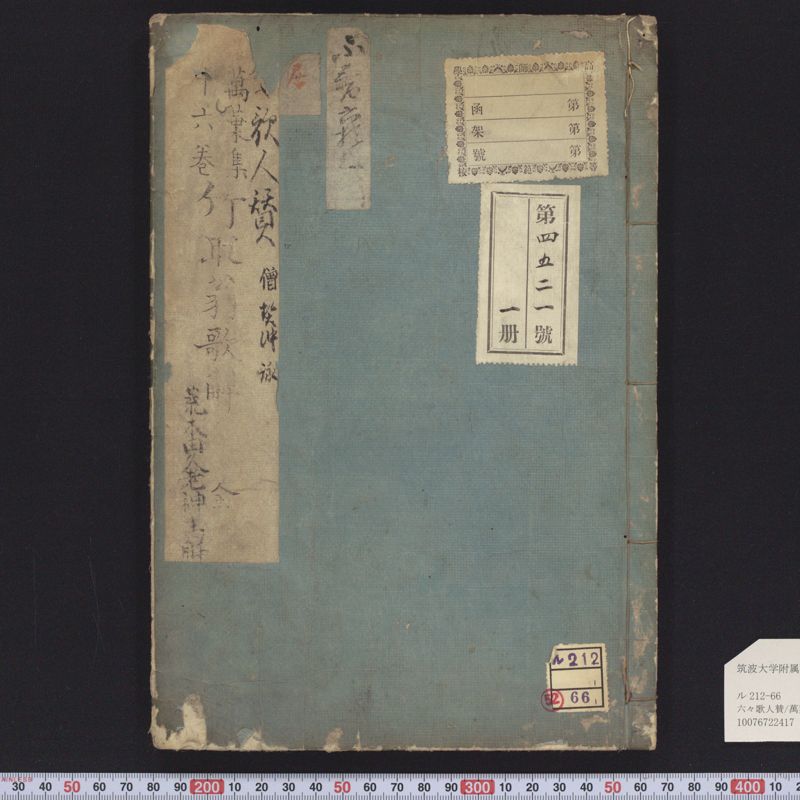 歌人賛 僧契沖詠
萬葉集
十六巻
竹取翁歌解
全
荒木田久老神主解
第 函
第 架
第 號
第四五二一號
一册
ル212
66
筑波大学附属
ル 212-66
六々歌人賛/萬
10076722417
STAINLESS
30 40 50 60 70 80 90 200 10 20 30 40 50 60 70 80 90 300 10 20 30 40 50 60 70 80 90 400 10 20